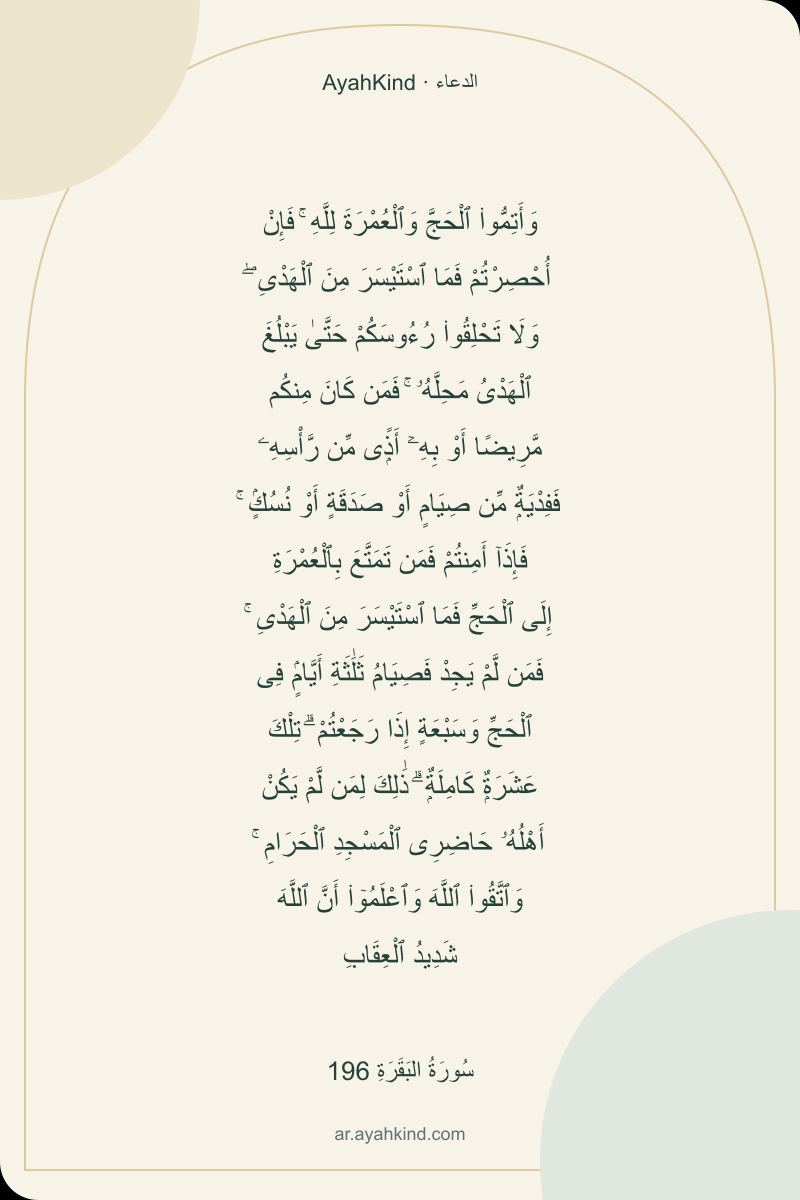 AyahKind · الدعاء
وَأَتِمُّوا۟ ٱلْحَجَّ وَٱلْعُمْرَةَ لِلَّهِ ۚ فَإِنْ
أُحْصِرْتُمْ فَمَا ٱسْتَيْسَرَ مِنَ ٱلْهَدْىِ ۖ
وَلَا تَحْلِقُوا۟ رُءُوسَكُمْ حَتَّىٰ يَبْلُغَ
ٱلْهَدْىُ مَحِلَّهُۥ ۚ فَمَن كَانَ مِنكُم
مَّرِيضًا أَوْ بِهِۦٓ أَذًۭى مِّن رَّأْسِهِۦ
فَفِدْيَةٌۭ مِّن صِيَامٍ أَوْ صَدَقَةٍ أَوْ نُسُكٍۢ ۚ
فَإِذَآ أَمِنتُمْ فَمَن تَمَتَّعَ بِٱلْعُمْرَةِ
إِلَى ٱلْحَجِّ فَمَا ٱسْتَيْسَرَ مِنَ ٱلْهَدْىِ ۚ
فَمَن لَّمْ يَجِدْ فَصِيَامُ ثَلَـٰثَةِ أَيَّامٍۢ فِى
ٱلْحَجِّ وَسَبْعَةٍ إِذَا رَجَعْتُمْ ۗ تِلْكَ
عَشَرَةٌۭ كَامِلَةٌۭ ۗ ذَٰلِكَ لِمَن لَّمْ يَكُنْ
أَهْلُهُۥ حَاضِرِى ٱلْمَسْجِدِ ٱلْحَرَامِ ۚ
وَٱتَّقُوا۟ ٱللَّهَ وَٱعْلَمُوٓا۟ أَنَّ ٱللَّهَ
شَدِيدُ ٱلْعِقَابِ
سُورَةُ البَقَرَةِ 196
ar.ayahkind.com